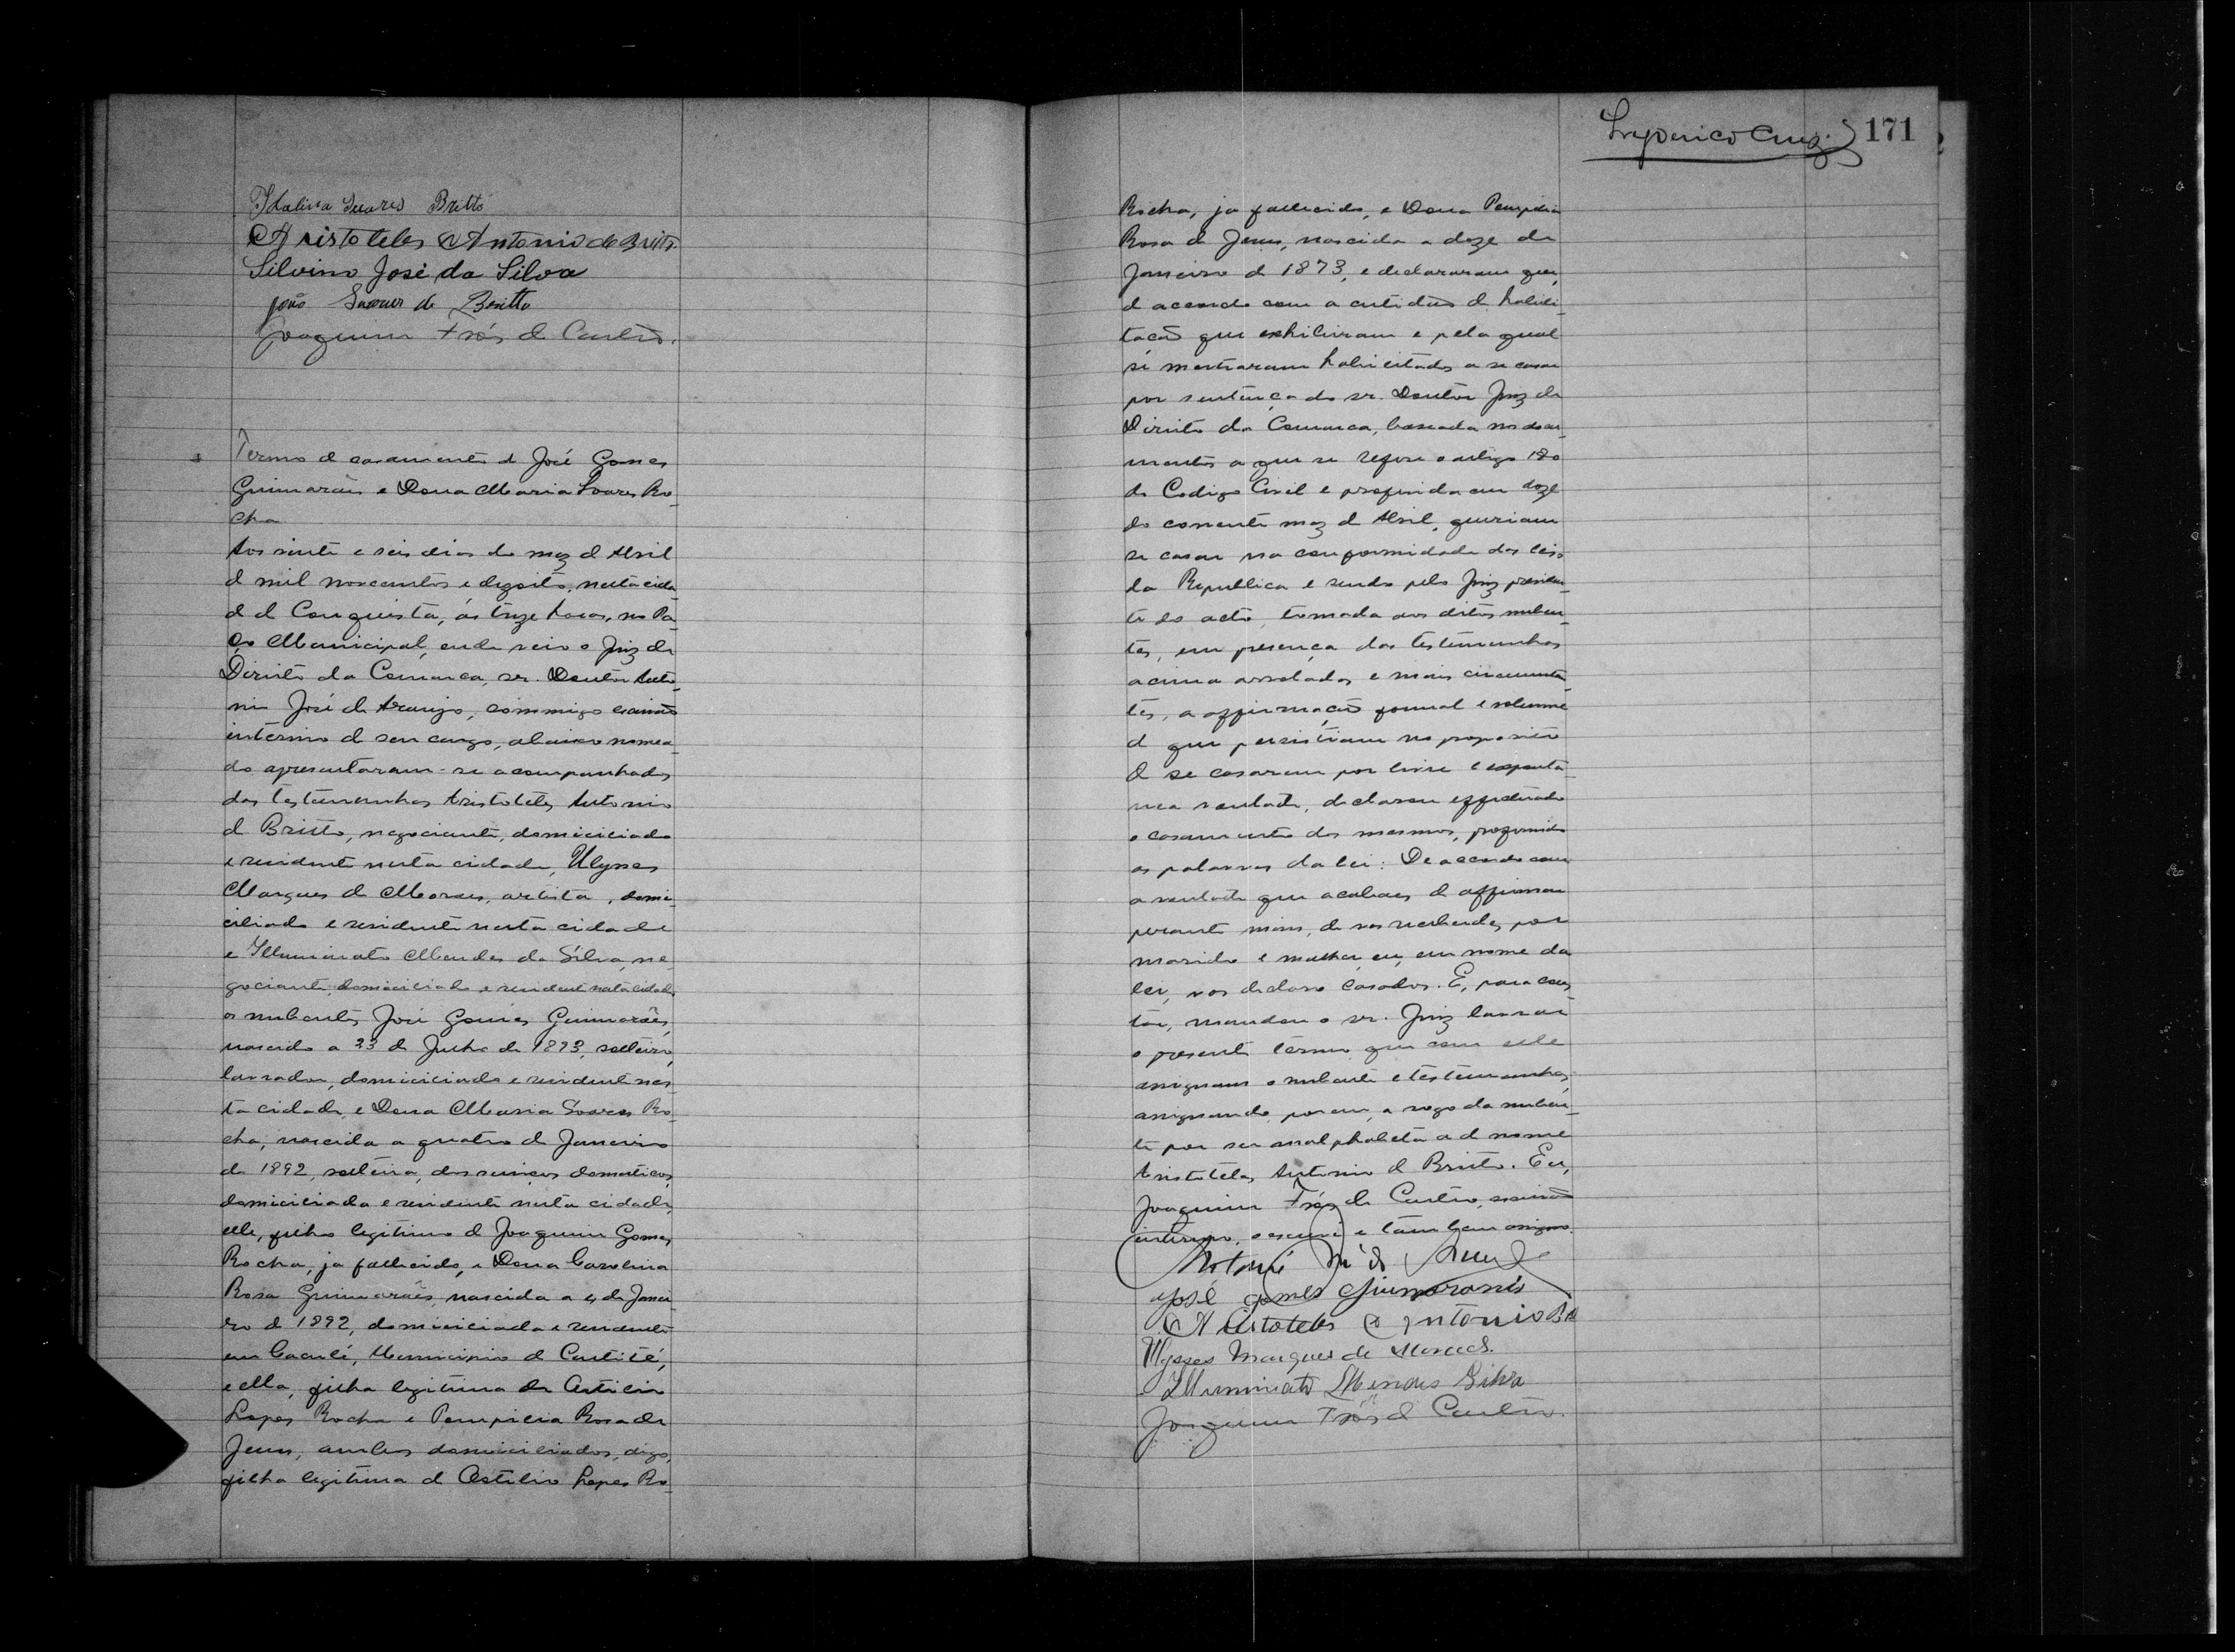 Idalina Soares Britto
Aristoteles Antonio de Britto.
Silvino José da Silva
João Soares de Britto
Joaquim Fróes de Castro.
Termo de casamento de José Gomes
Guimarães e Dona Maria Soares Ro-
cha
Aos vinte e seis dias do mez de Abril
de mil novecentos e dezoito, nesta cida-
de de Conquista, ás treze horas, no Pa-
ço Municipal, onde veio o Juiz de
Direito da Comarca, sr. Doutor Anto-
nio José de Araujo, commigo escrivão
interino de seu cargo, abaixo nomea-
do apresentaram-se acompanhados
das testemunhas Aristoteles Antonio
de Britto, negociante, domiciliado
e residente nesta cidade, Ulysses
Marques de Moraes, artista, domi-
ciliado e residente nesta cidade
e Illuminato Mendes da Silva, ne-
gociante, domiciliado e residente nesta cidade
os nubentes José Gomes Guimarães,
nascido a 23 de Julho de 1893, solteiro,
lavrador, domiciliado e residente nes-
ta cidade, e Dona Maria Soares Ro-
cha, nascida a quatro de Janeiro
de 1892, solteira, dos serviços domesticos,
domiciliada e residente nesta cidade,
elle, filho legitimo de Joaquim Gomes
Rocha, ja fallecido, e Dona Carolina
Rosa Guimarães, nascida a 4 de Janei-
ro de 1892, domiciliada e residente
em Caculé, Municipio de Caetité,
e ella, filha legitima de Astilio
Lopes Rocha e Pompilia Rosa de
Jesus, ambos domiciliados, digo,
filha legitima de Astilio Lopes Ro-
Lupericо Cruz. 171
Rocha, ja fallecido, e Dona Pompilia
Rosa de Jesus, nascida a doze de
Janeiro de 1873, e declararam que,
de accordo com a certidão de habili-
tação que exhibiram e pela qual
se mostraram habilitados a se casar
por sentença do sr. Doutor Juiz de
Direito da Comarca, baseada nos docu-
mentos a que se refere o artigo 180
do Codigo Civil e proferida em doze
do corrente mez de Abril, queriam
se casar na conformidade das leis
da Republica e sendo pelo Juiz presiden-
te do acto, tomada aos ditos nuben-
tes, em presença das testemunhas
acima arroladas e mais circumstan-
tes, a affirmação formal e solemne
de que persistiam no proposito
de se casarem por livre e esponta-
nea vontade, declarou effectuado
o casamento dos mesmos, proferindo
as palavras da lei: De accordo com
a vontade que acabaes de affirmar
perante mim, de vos receberdes por
marido e mulher, eu, em nome da
lei, vos declaro casados. E, para cons-
tar, mandou o sr. Juiz lavrar
o presente termo que com elle
assignam o nubente e testemunhas,
assignando, porem, a rogo da nuben-
te por ser analphabeta a de nome
Aristoteles Antonio de Britto. Eu,
Joaquim Fróes de Castro, escrivão
interino, o escrevi e tambem assigno.
José Gomes Guimarães
Aristoteles Antonio
Ulysses Marques de Moraes.
Illuminato Mendes Silva
Joaquim Fróes de Castro.